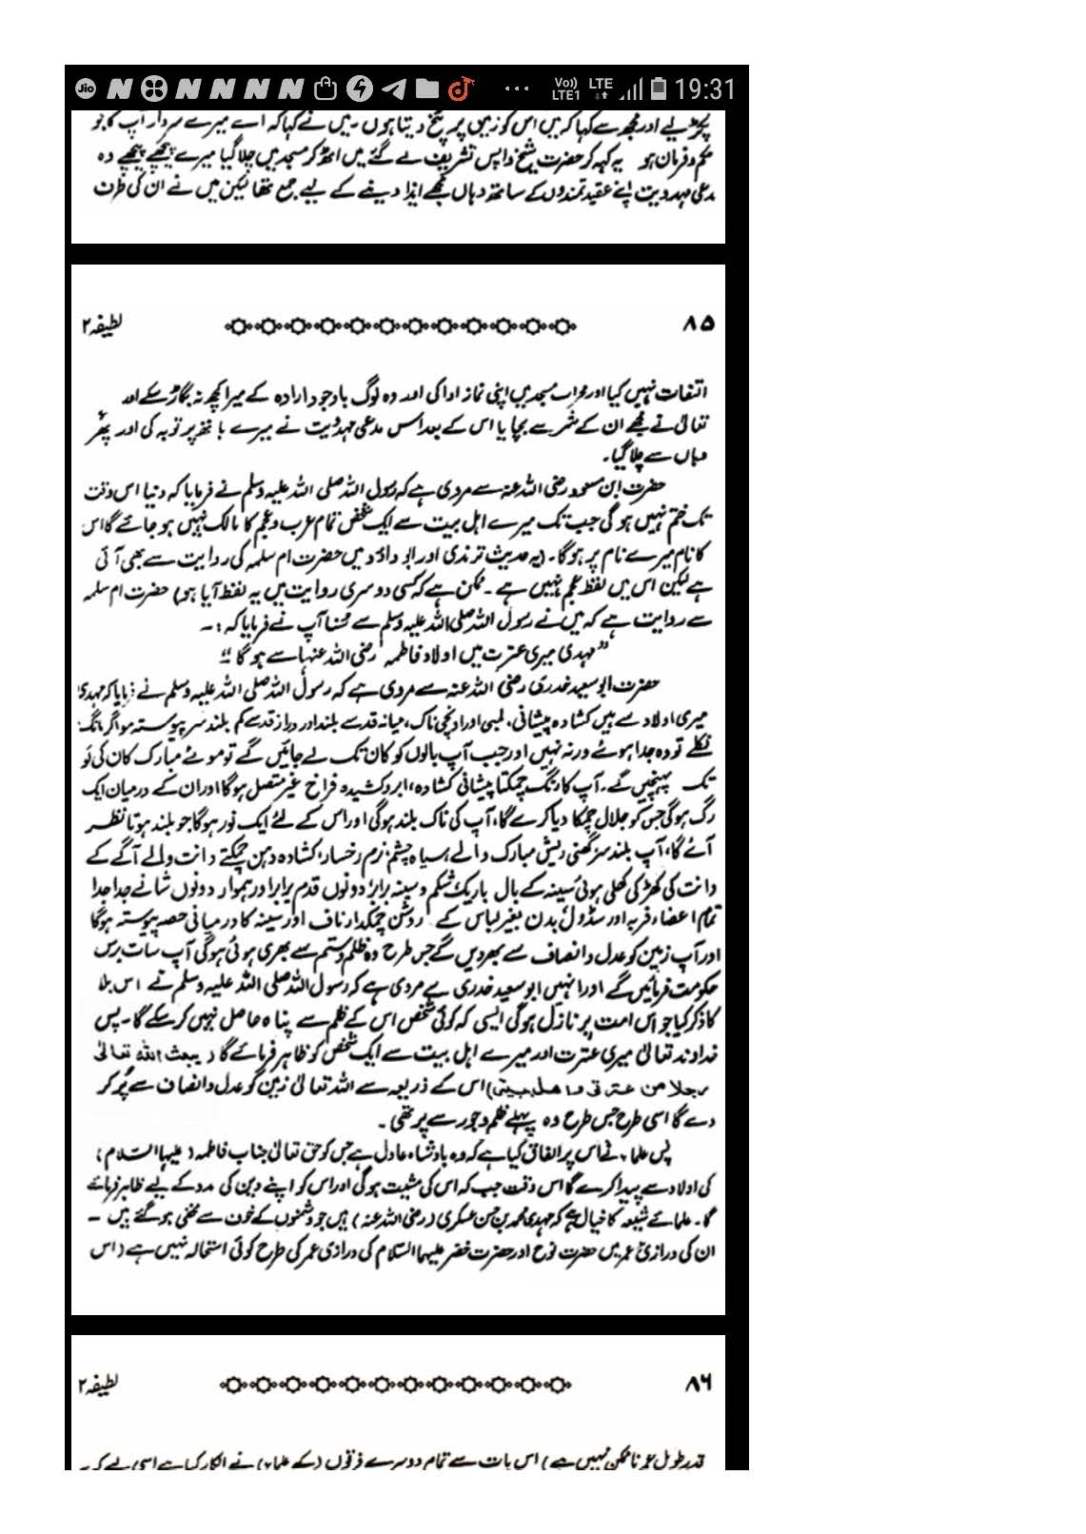 Jio Vo)) LTE1 LTE 19:31
پکڑ لیے اور مجھ سے کہا کہ میں اس کو زمین پر پٹخ دیتا ہوں۔ میں نے کہا کہ اے میرے سردار آپ کا جو
حکم و فرمان ہو یہ کہہ کر حضرت شیخ واپس تشریف لے گئے میں اٹھ کر مسجد میں چلا گیا میرے پیچھے پیچھے وہ
مدعی مہدویت اپنے عقیدتمندوں کے ساتھ وہاں مجھے ایذا دینے کے لیے جمع تھا لیکن میں نے ان کی طرف
۸۵ لطیفہ ۲
التفات نہیں کیا اور محراب مسجد میں اپنی نماز ادا کی اور وہ لوگ باوجود ارادہ کے میرا کچھ نہ بگاڑ سکے اور
تعالیٰ نے مجھے ان کے شر سے بچایا اس کے بعد اس مدعی مہدویت نے میرے ہاتھ پر توبہ کی اور پھر
وہاں سے چلا گیا۔
حضرت ابن مسعود رضی اللہ عنہ سے مروی ہے کہ رسول اللہ صلی اللہ علیہ وسلم نے فرمایا کہ دنیا اس وقت
تک ختم نہیں ہو گی جب تک میرے اہل بیت سے ایک شخص تمام عرب و عجم کا مالک نہیں ہو جائے گا اس
کا نام میرے نام پر ہوگا۔ (یہ حدیث ترمذی اور ابو داؤد میں حضرت ام سلمہ کی روایت سے بھی آئی
ہے لیکن اس میں لفظ عجم نہیں ہے۔ ممکن ہے کہ کسی دوسری روایت میں یہ لفظ آیا ہو) حضرت ام سلمہ
سے روایت ہے کہ میں نے رسول اللہ صلی اللہ علیہ وسلم سے سنا آپ نے فرمایا کہ :۔
"مہدی میری عترت میں اولاد فاطمہ رضی اللہ عنہا سے ہو گا"
حضرت ابو سعید خدری رضی اللہ عنہ سے مروی ہے کہ رسول اللہ صلی اللہ علیہ وسلم نے فرمایا کہ مہدی
میری اولاد سے ہیں کشادہ پیشانی، لمبی اور اونچی ناک، میانہ قد سے بلند اور دراز قد سے کم بلند سر پیوستہ مو اگر مانگ
نکلے تو وہ جدا ہوئے ورنہ نہیں اور جب آپ بالوں کو کان تک لے جائیں گے تو موئے مبارک کان کی لو
تک پہنچیں گے۔ آپ کا رنگ چمکتا پیشانی کشادہ، ابرو کشیدہ فراخ غیر متصل ہوگا اور ان کے درمیان ایک
رگ ہوگی جس کو جلال چمکا دیا کرے گا، آپ کی ناک بلند ہوگی اور اس کے لئے ایک نور ہوگا جو بلند ہوتا نظر
آئے گا، آپ بلند سر گھنی ریش مبارک والے سیاہ چشم نرم رخسار، کشادہ دہن چمکتے دانت والے آگے کے
دانت کی کھڑکی کھلی ہوئی سینہ کے بال باریک شکم و سینہ برابر دونوں قدم برابر اور ہموار دونوں شانے جدا جدا
تمام اعضاء فربہ اور سڈول بدن بغیر لباس کے روشن چمکدار ناف اور سینہ کا درمیانی حصہ پیوستہ ہوگا
اور آپ زمین کو عدل و انصاف سے بھر دیں گے جس طرح وہ ظلم و ستم سے بھری ہوئی ہوگی آپ سات برس
حکومت فرمائیں گے اور انہیں ابو سعید خدری سے مروی ہے کہ رسول اللہ صلی اللہ علیہ وسلم نے اس بلا
کا ذکر کیا جو اس امت پر نازل ہوگی ایسی کہ کوئی شخص اس کے ظلم سے پناہ حاصل نہیں کر سکے گا۔ پس
خداوند تعالیٰ میری عترت اور میرے اہل بیت سے ایک شخص کو ظاہر فرمائے گا (یبعث اللہ تعالیٰ
رجلا من عترتی و اھلبیتی) اس کے ذریعہ سے اللہ تعالیٰ زمین کو عدل و انصاف سے پُر کر
دے گا اسی طرح جس طرح وہ پہلے ظلم و جور سے پر تھی۔
پس علماء نے اس پر اتفاق کیا ہے کہ وہ بادشاہ عادل ہے جس کو حق تعالیٰ جناب فاطمہ (علیہا السلام)
کی اولاد سے پیدا کرے گا اس وقت جب کہ اس کی مشیت ہو گی اور اس کو اپنے دین کی مدد کے لیے ظاہر فرمائے
گا۔ علمائے شیعہ کا خیال ہے کہ مہدی محمد بن حسن عسکری (رضی اللہ عنہ) ہیں جو دشمنوں کے خوف سے مخفی ہو گئے ہیں ۔
ان کی درازئ عمر میں حضرت نوح اور حضرت خضر علیہما السلام کی درازی عمر کی طرح کوئی استحالہ نہیں ہے (اس
۸۶ لطیفہ ۲
قدر طول عمر ناممکن نہیں ہے) اس بات سے تمام دوسرے فرقوں (کے علماء) نے انکار کیا ہے اسی لیے کہ